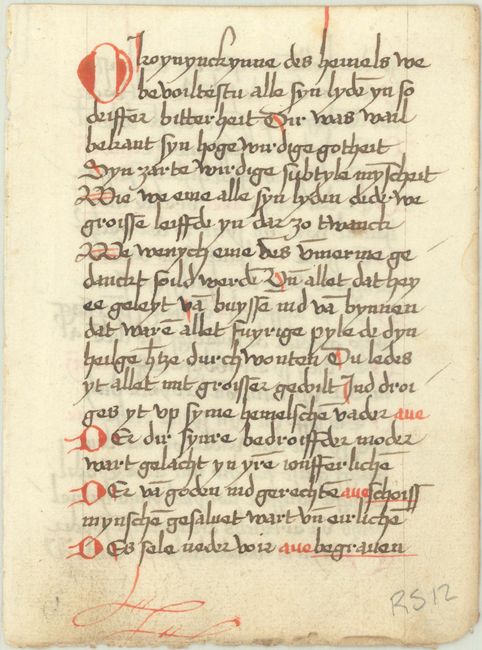 O koynynckynne des hemels we
bevoiltestu alle syn lydē yn so
deiffer bitterheit Dir was wail
bekant syn hoge wirdige gotheit
Syn zarte wirdige subtyle mȳscheit
Wie we eme alle syn lyden dede we
groisse leiffde yn dar zo twanck
We wenych eme des vm̄erme ge
danckt sould werdē Vn̄ allet dat hey
ee geleyt vā buyssē ind vā bynnen
dat warē allet fuyrige pyle de dyn
heilge h̄tze durchwonten Du ledes
yt allet mit groisser gedoilt Ind droi
ges yt vp syme hemelschē vader aue
D Er dir synre bedroiffder moder
wart gelacht yn yrē iunfferlichē
D Er vā goden ind gerechtē aue schoiss
mynschē gesaluet wart vn̄ eirlichē
D Es sele neder voir aue begrauen
RS12